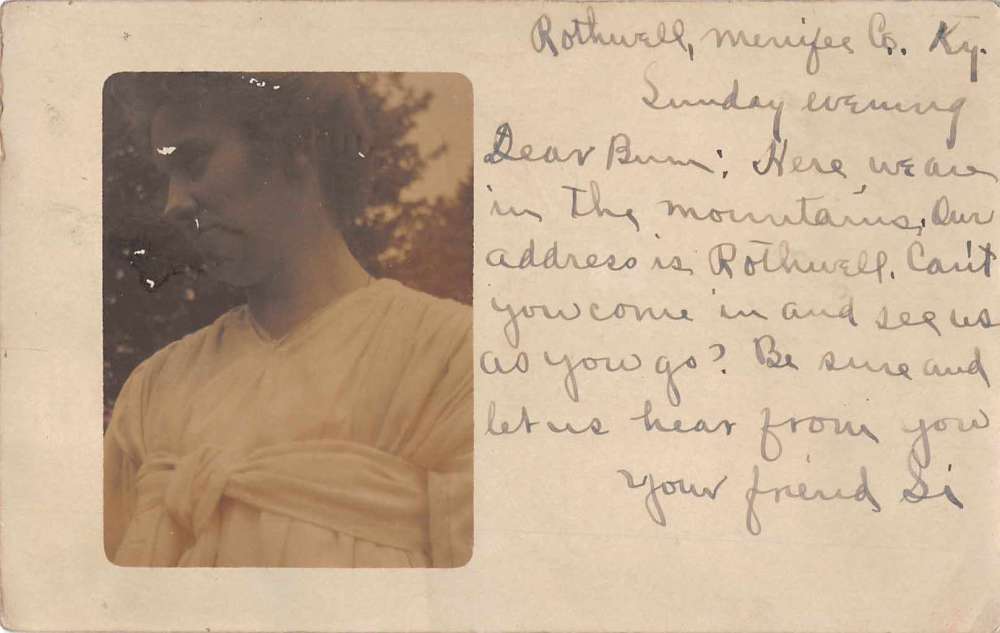 Rothwell, Menifee Co. Ky.
Sunday evening
Dear Bum: Here we are
in the mountains. Our
address is Rothwell. Can't
you come in and see us
as you go? Be sure and
let us hear from you
Your friend Si